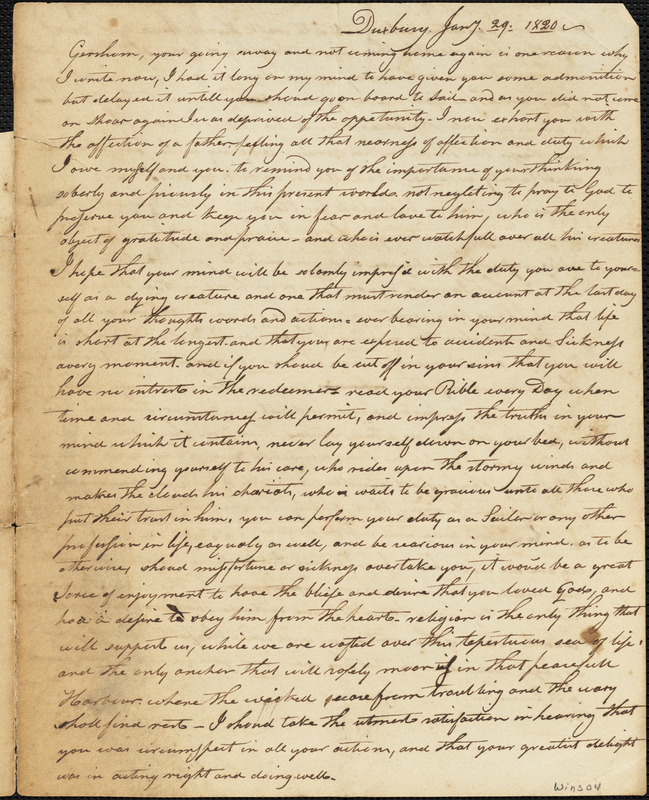 Duxbury. Jany. 29. 1820
Gershom, your going away and not coming home again is one reason why
I write now, I had it long on my mind to have given you some admonition
but delayed it untill you should go on board to sail and as you did not come
on shoar again I was deprived of the oppertunity. I now exhort you with
the affection of a father feelling all that nearness of affection and duty which
I owe myself and you. to remind you of the importance of your thinking
soberly and piously in this present world. not neglecting to pray to God to
preserve you and keep you in fear and love to him, who is the only
object of gratitude and praise - and who is ever watchfull over all his creatures
I hope that your mind will be solomly impress'd with the duty you owe to your=
self as a dying creature and one that must render an account at the last day
of all your thoughts words and actions = ever bearing in your mind that life
is short at the longest. and that you are exposed to accidents and Sickness
avery moment. and if you should be cut off in your sins that you will
have no intrest in the redeemer - read your Bible every Day when
time and circumstances will permit, and impress the truths in your
mind which it contains, never lay yourself down on your bed, without
commending yourself to his care, who rides upon the stormy winds and
makes the clouds his chariots, who waits to be gracious unto all those who
put their trust in him, you can perform your duty as a Sailor or any other
profession in life, eaqualy as well, and be searious in your mind. as to be
otherwise, shoud missfortune or sickness overtake you, it would be a great
sorce of enjoyment to have the blief and desire that you loved God, and
had a desire to obey him from the heart - religion is the only thing that
will support us, while we are wafted over this tepestuous sea of life,
and the only anchor that will safely moor us in that peacefull
Harbour. where the wicked cease from troubling and the wary
shall find rest - I shoud take the utmost satisfaction in hearing that
you was circumspect in all your actions, and that your greatest delight
was in acting right and doing well -
Winsor